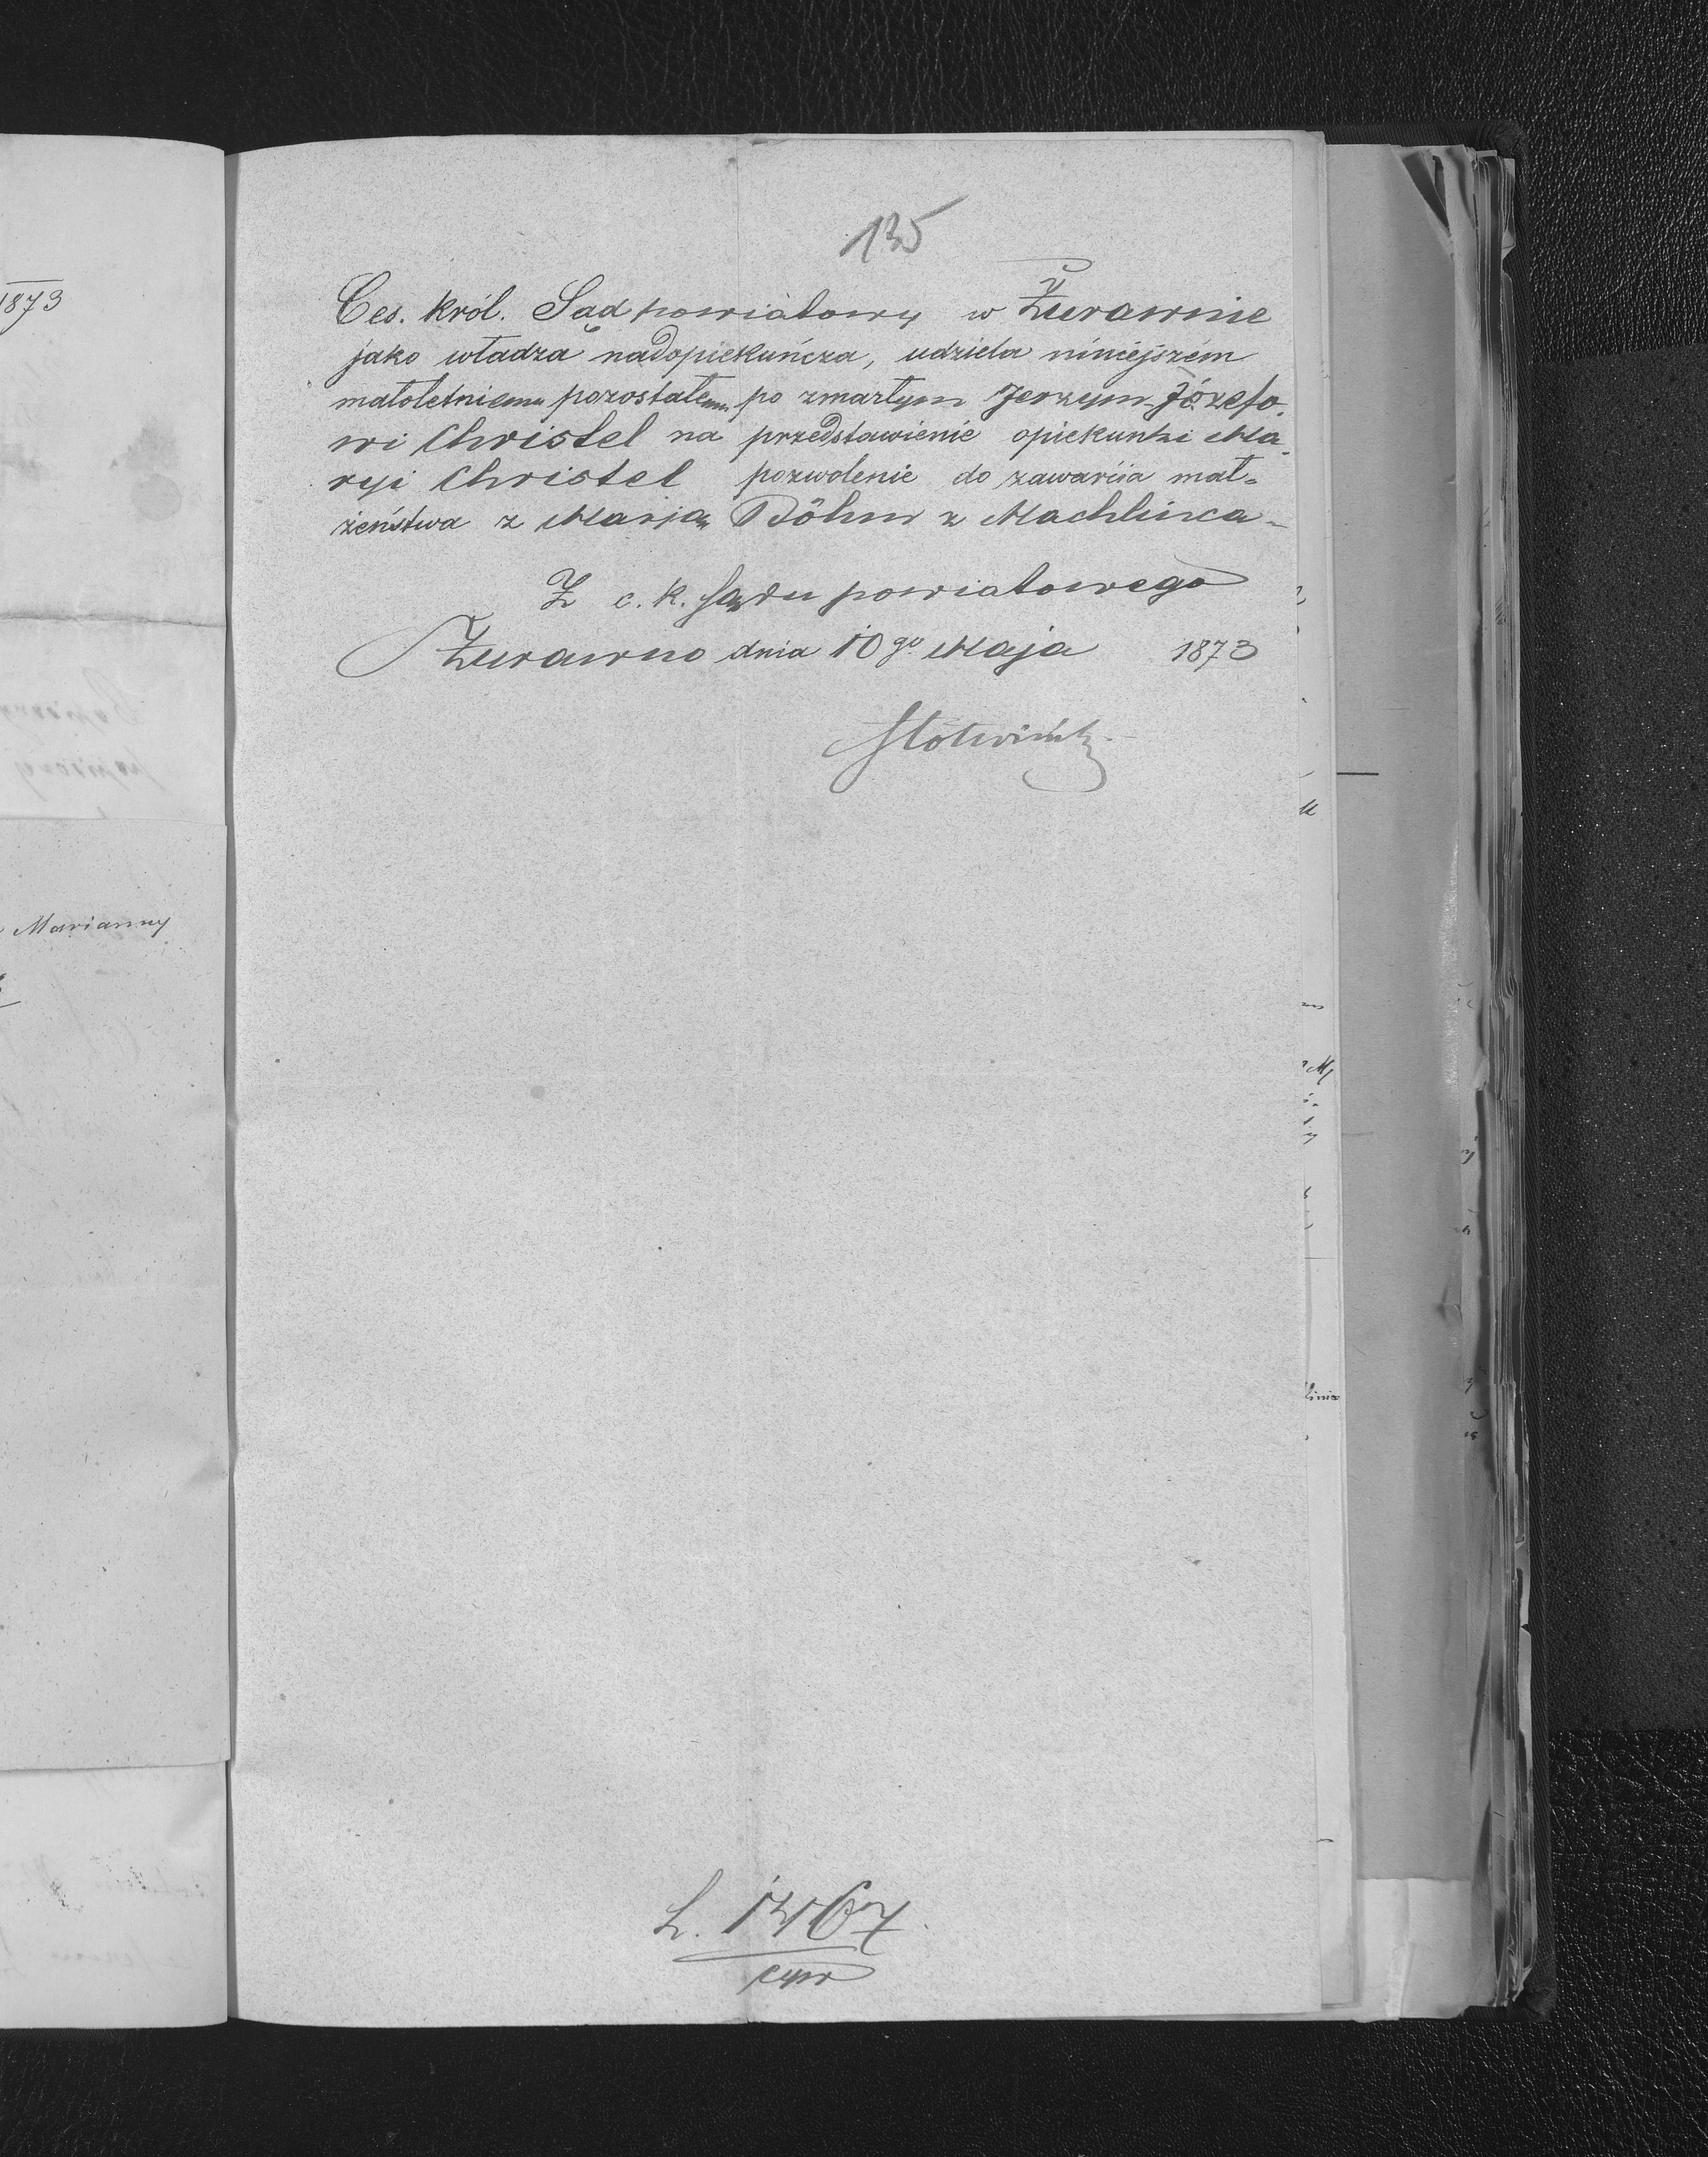 135
Ces. król. Sąd powiatowy w Żurawnie
jako władza nadopiekuńcza, udziela niniejszém
małoletniemu pozostałemu po zmarłym Jerzym Józefo-
wi Christel na przedstawienie opiekunki Ma-
ryi Christel pozwolenie do zawarcia mał-
żeństwa z Marją Böhm z Machlińca
Z c. k. Sądu powiatowego
Żurawno dnia 10go Maja 1873
L. 1367
cyw
1873
Marianny